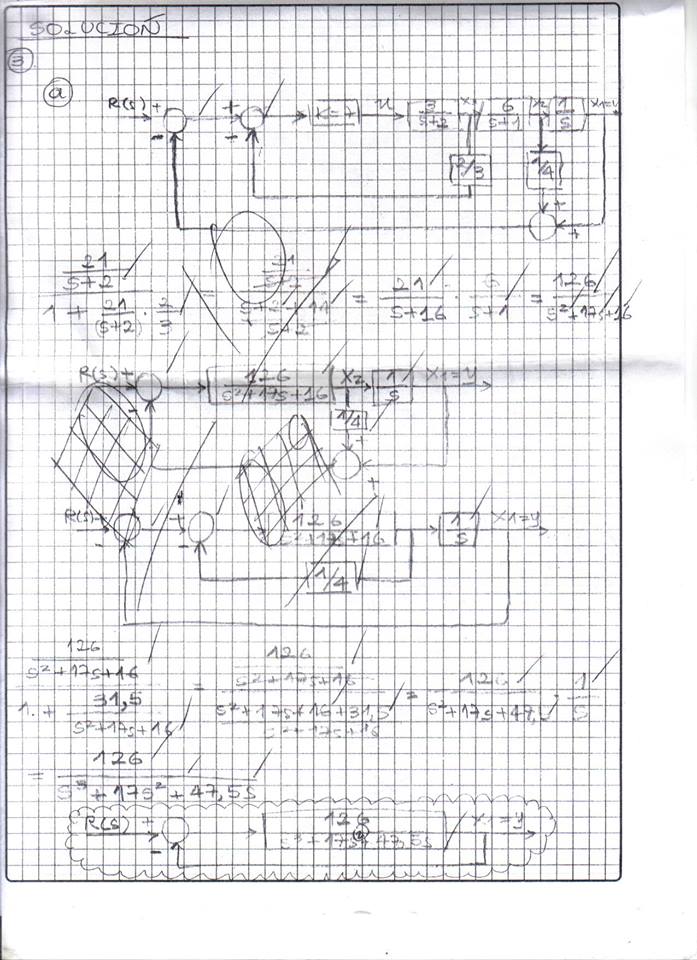 SOLUCIÓN
3
a
R(s) + - + - K=7 u 3/(s+2) 6/(s+1) X2 1/s X1=y
2/3 1/4
+ +
(21/(s+2)) / (1 + 21/(s+2) · 2/3) = = 21/(s+16) · 6/(s+1) = 126/(s²+17s+16)
R(s) + - 126/(s²+17s+16) X2 1/s X1=y
1/4
+ +
R(s) + - + - 126/(s²+17s+16) 1/s X1=y
1/4
(126/(s²+17s+16)) / (1 + 31,5/(s²+17s+16)) = (126/(s²+17s+16)) / ((s²+17s+16+31,5)/(s²+17s+16)) = 126/(s²+17s+47,5) · 1/s
= 126/(s³+17s²+47,5s)
R(s) + - 126/(s³+17s²+47,5s) X1=y